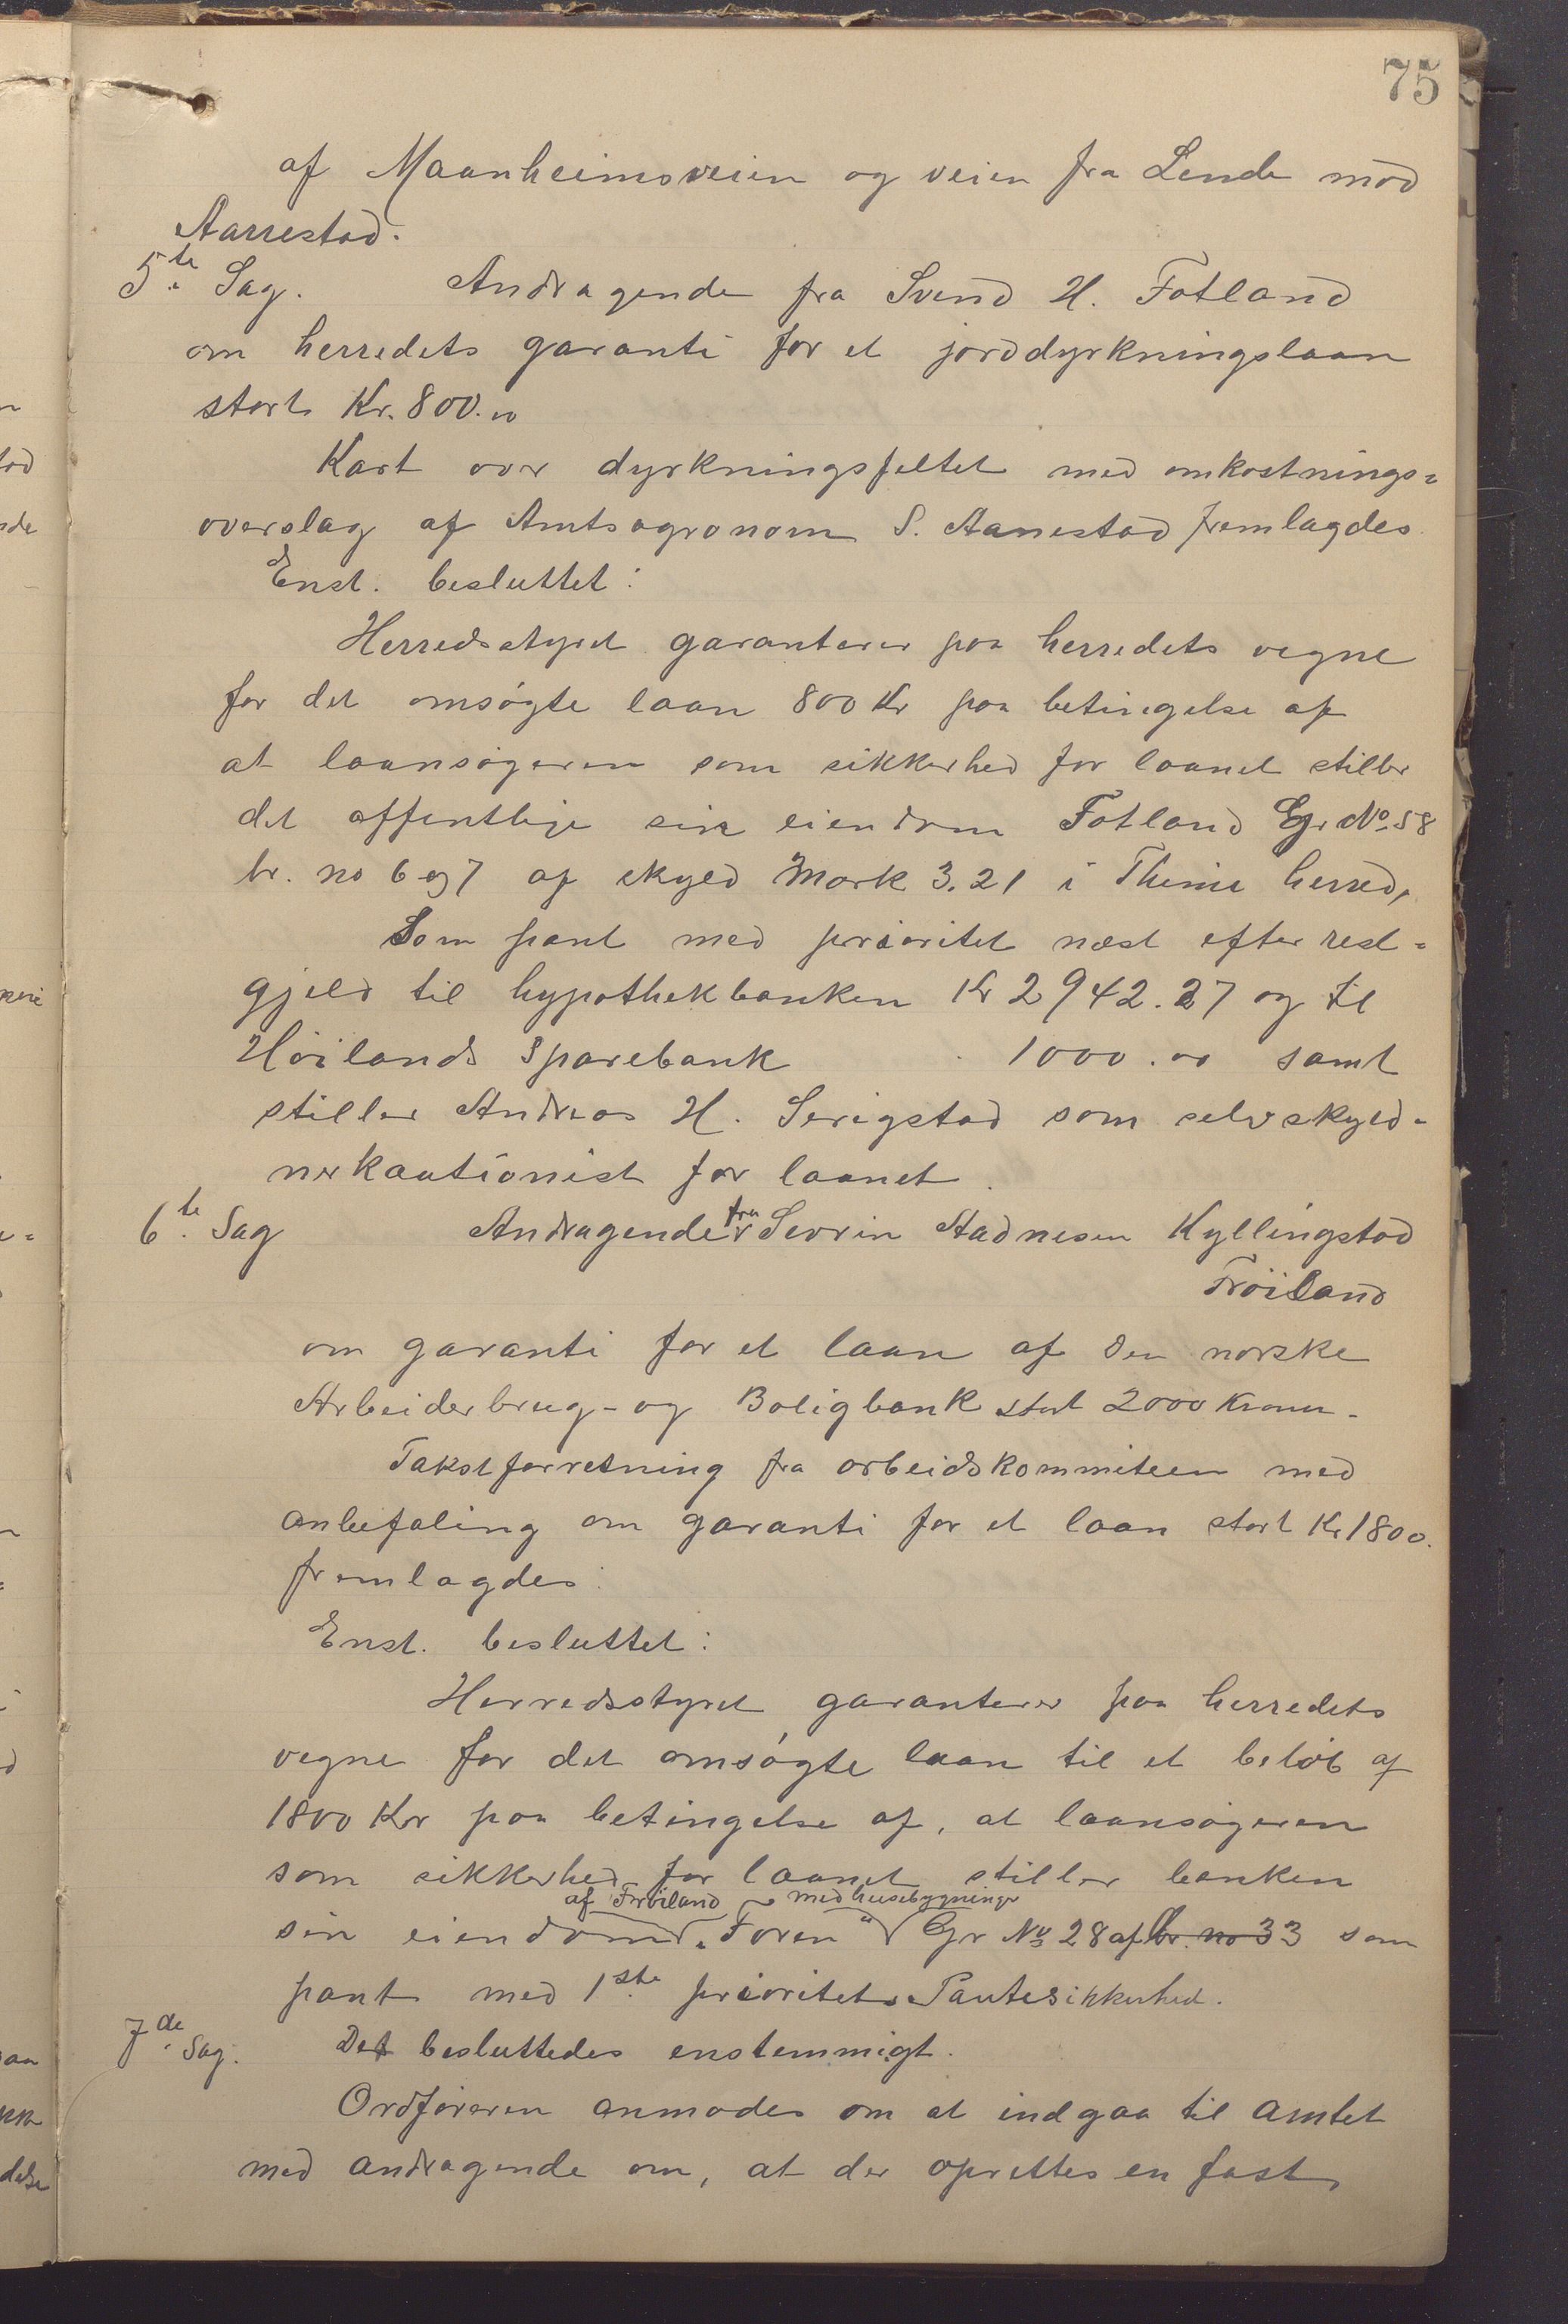 75
af Maanheimsveien og veien fra Lende mod
Aarrestad.
5te Sag. Andragende fra Svend H. Fotland
om herredets garanti for et jorddyrkningslaan
stort Kr. 800.00
Kart over dyrkningsfeltet med omkostnings=
overslag af Amtsagronom S. Aanestad fremlagdes
Enst. besluttet:
Herredsstyret garanterer paa herredets vegne
for det omsøgte laan 800 Kr paa betingelse af
at laansøgeren som sikkerhed for laanet stiller
det offentlige sin eiendom Fotland Gr. No 58
br. no 6 og 7 af skyld Mark 3.21 i Thime herred,
Som pant med prioritet næst efter rest=
gjeld til hypothekbanken Kr 2942.27 og til
Höilands Sparebank 1000.00 samt
stiller Andreas H. Serigstad som selvskyld=
nerkautionist for laanet.
6te Sag Andragende fra Sevrin Aadnesen Kyllingstad
Fröiland
om garanti for et laan af den norske
Arbeiderbrug- og Boligbank stort 2000 Kroner.
Takstforretning fra arbeidskommiteen med
anbefaling om garanti for et laan stort Kr 1800.
fremlagdes.
Enst. besluttet:
Herredsstyret garanterer paa herredets
vegne for det omsøgte laan til et beløb af
1800 Kr paa betingelse af, at laansøgeren
som sikkerhed for laanet stiller banken
af Fröiland med husebygninger
sin eiendom „Foren“ Gr No 28 af br. no 33 som
pant med 1ste prioritets Pantesikkerhed.
7de Sag. Det besluttedes enstemmigt.
Ordføreren anmodes om at indgaa til amtet
med andragende om, at der oprettes en fast